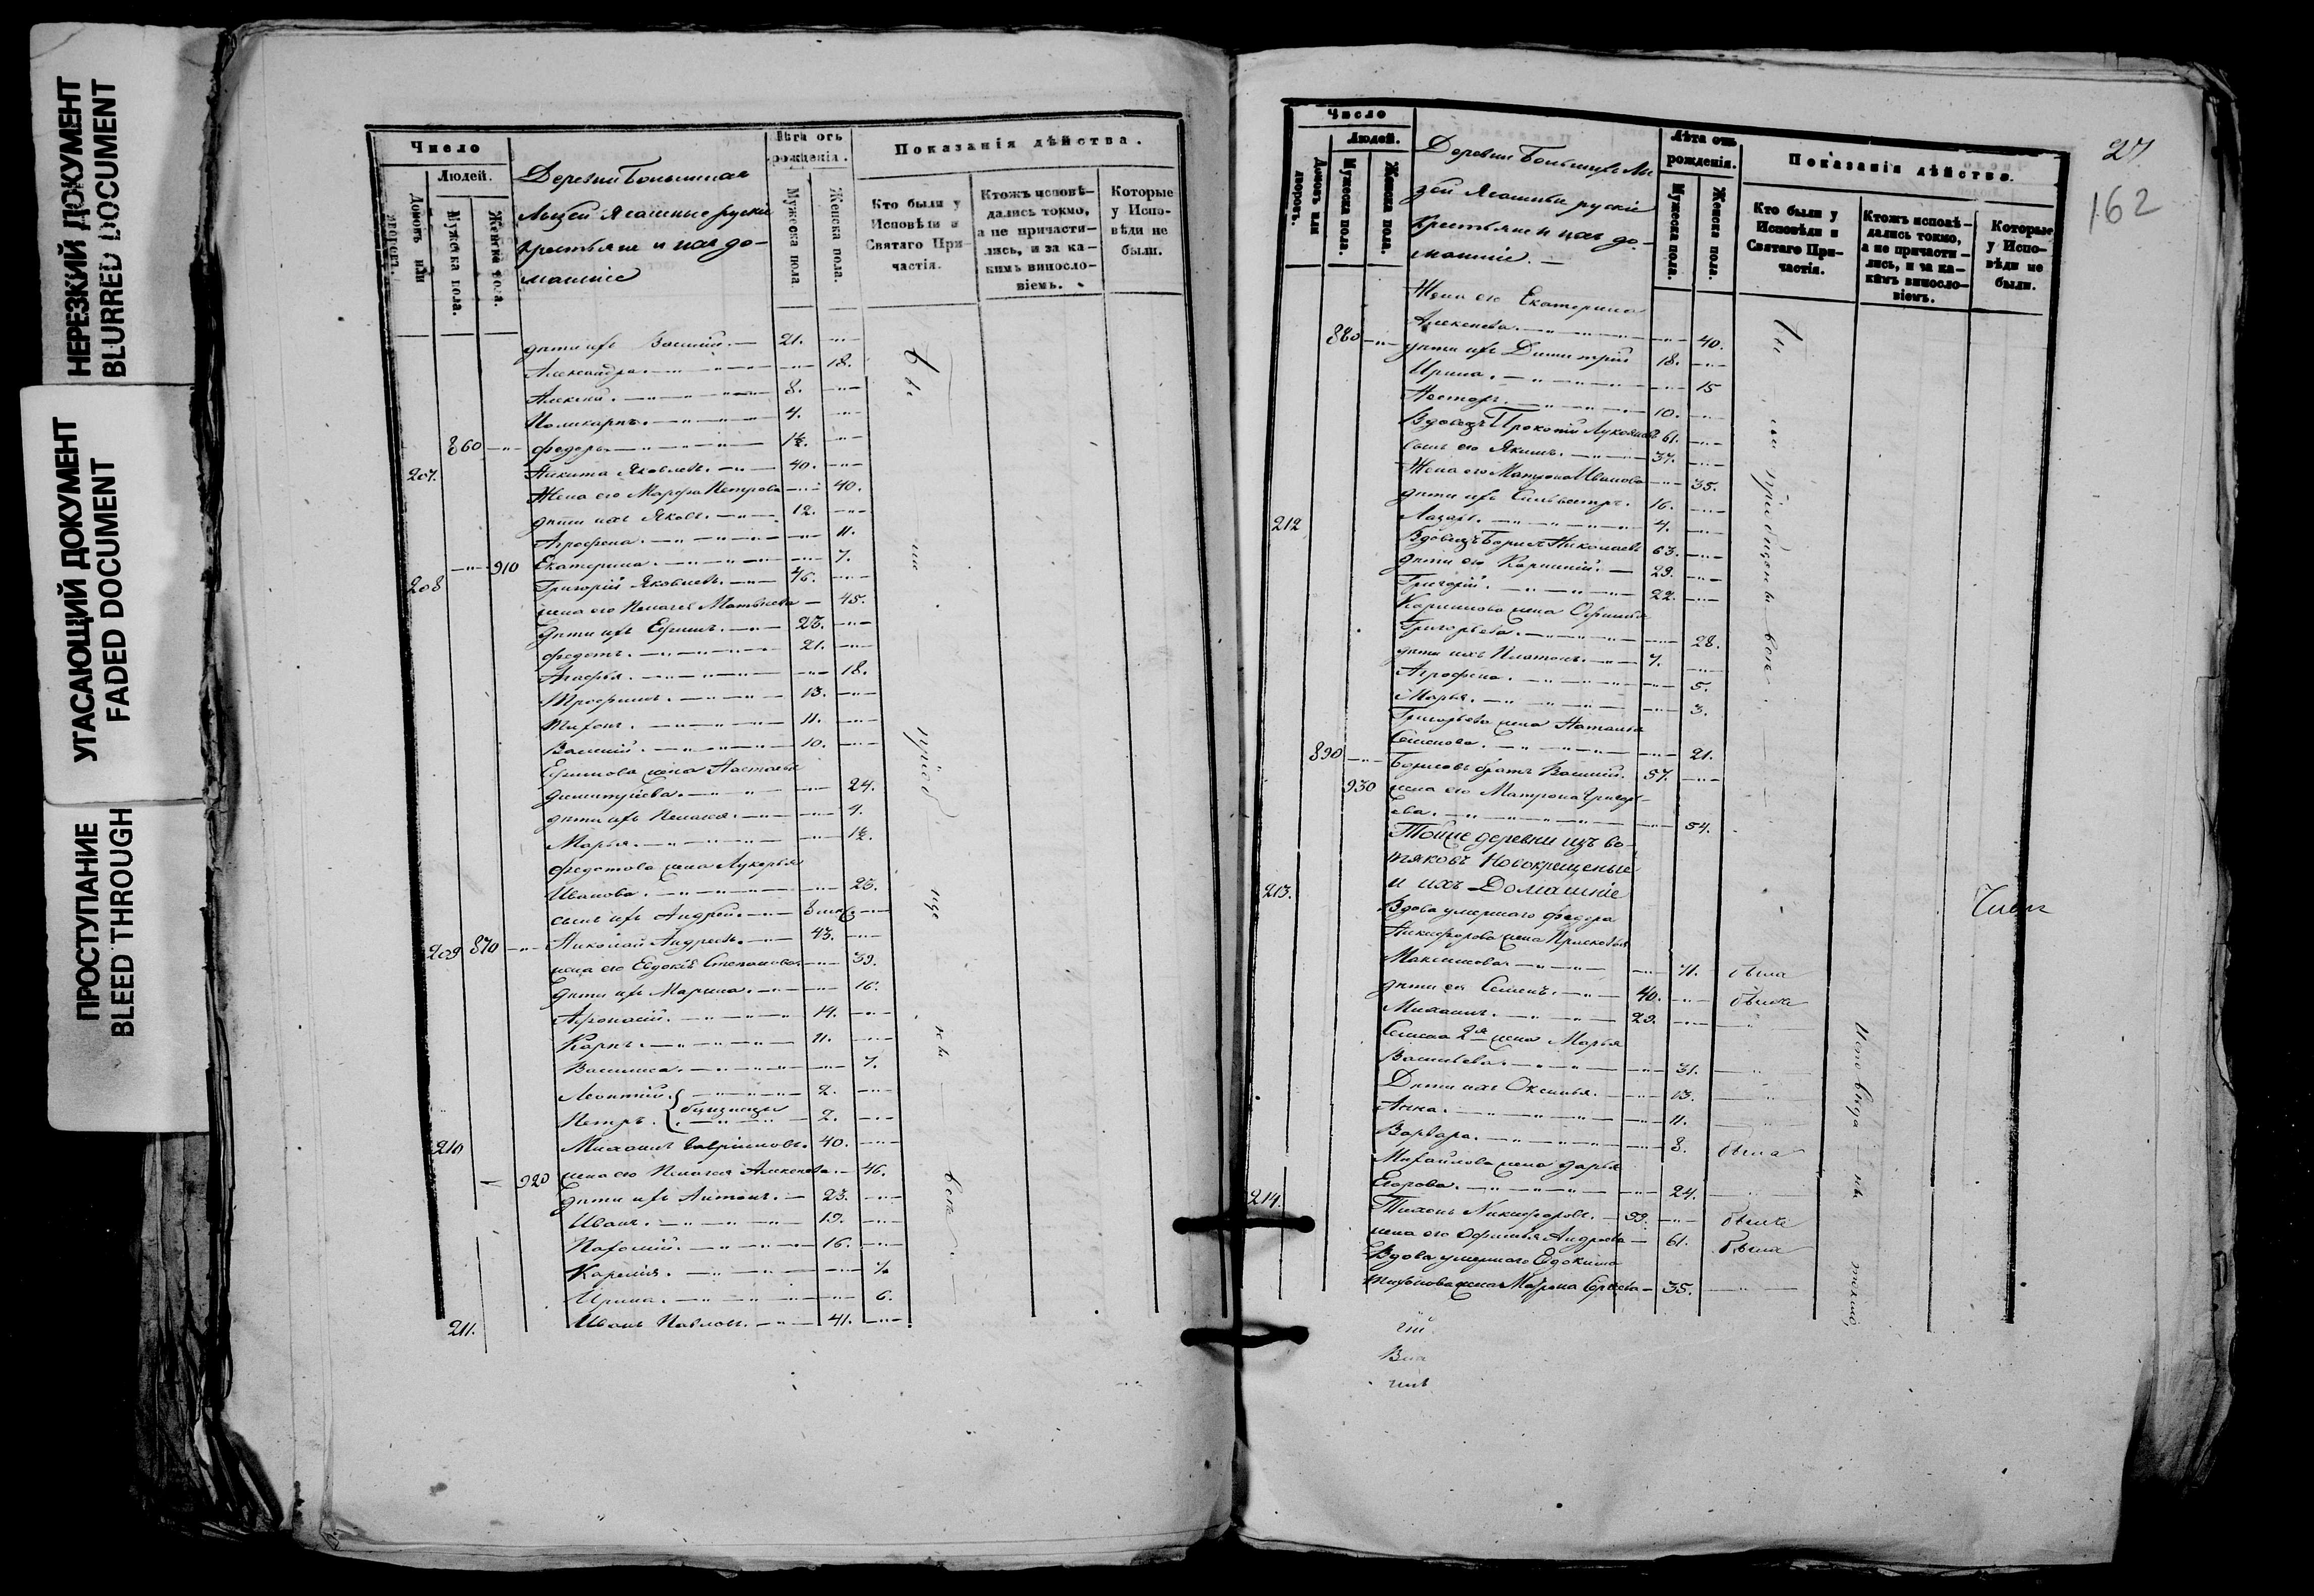 НЕРЕЗКИЙ ДОКУМЕНТ
BLURRED DOCUMENT
УГАСАЮЩИЙ ДОКУМЕНТ
FADED DOCUMENT
ПРОСТУПАНИЕ
BLEED THROUGH
Число
Людей.
Домовъ или дворовъ.
Мужеска пола.
Женска пола.
Деревни
Ясашные руские
крестьяне и ихъ до-
машніе
Лѣта отъ
рожденія.
Мужеска пола
Женска пола.
Показанія дѣйства.
Кто были у
Исповѣди и
Святаго При-
частія.
Ктожъ исповѣ-
дались токмо,
а не причасти-
лись, и за ка-
кимъ винослo-
віемъ.
Которые
у Испо-
вѣди не
были.
дѣти ихъ Василій. 21.
Александра. 18.
Алексѣй. 8.
Поликарпъ. 4.
860 Федоръ 1½.
207. Никита Яковлевъ. 40.
Жена его Марфа Петрова 40.
дѣти ихъ Яковъ. 12.
Агрофена. 11.
910 Екатерина. 7.
208 Григорій Яковлевъ. 46.
жена его Пелагея Матвѣева 45.
дѣти ихъ Ефимъ. 23.
Федотъ. 21.
Агафья. 18.
Трофимъ. 13.
Тихонъ. 11.
Василій. 10.
Ефимова жена Настасья
Димитріева. 24.
дѣти ихъ Пелагея. 4.
Марья. 1½.
Федотова жена Лукерья
Иванова. 23.
сынъ ихъ Андрей.
209 870 Николай Андреевъ. 43.
жена его Евдокія Степанова 39.
дѣти ихъ Марина. 16.
Афонасій. 14.
Карпъ. 11.
Василиса. 7.
Леонтій. 2.
Петръ. близнецы 2.
210 Михаилъ Гаврииловъ. 40.
920 жена его Пелагея Алексѣева. 46.
дѣти ихъ Антонъ. 23.
Иванъ. 19.
Пафомій. 16.
Ирина. 6.
211. Иванъ Павловъ. 41.
27
162
Число
Людей.
Домовъ или дворовъ.
Мужеска пола.
Женска пола.
Деревни
Ясашные руские
крестьяне и ихъ до-
машніе.
Лѣта отъ
рожденія.
Мужеска пола.
Женска пола.
Показанія дѣйства.
Кто были у
Исповѣди и
Святаго При-
частія.
Ктожъ исповѣ-
дались токмо,
а не причасти-
лись, и за ка-
кимъ винослo-
віемъ.
Которые
у Испо-
вѣди не
были.
Жена его Екатерина
Алексѣева. 40.
880 дѣти ихъ Димитрій 18.
Ирина. 15
Несторъ. 10.
Вдовецъ Прокопій Лукояновъ 61.
сынъ его Якимъ. 37.
Жена его Матрона Иванова 35.
дѣти ихъ Сильвестръ. 16.
Лазарь. 4.
212 Вдовецъ Борисъ Николаевъ 63.
дѣти его Карпилій. 29.
Григорій. 22.
жена Офимья
Григорьева. 28.
дѣти ихъ Платонъ. 7.
Агрофена. 5.
Марья. 3.
Григорьева жена Наталья
Семенова. 21.
890 Борисовъ братъ Василій. 57.
930 жена его Матрона Григорь-
ева. 54.
Тойже деревни изъ во-
тяковъ Новокрещеные
и ихъ Домашніе
213. Вдова умершаго Федора
Никифорова жена Прасковья
Максимова 71. была
дѣти ея Семенъ. 40. былъ
Михаилъ. 29.
Семена 2я жена Марья
Васильева. 31.
Дѣти ихъ Оксинья. 13.
Анна. 11.
Варвара. 8. была
Михайлова жена Дарья
Егорова. 24.
214. Тихонъ Никифоровъ. 59. былъ
жена его Офимья Андреева 61. была
Вдова умершаго Евдокима
Тихонова жена 35.